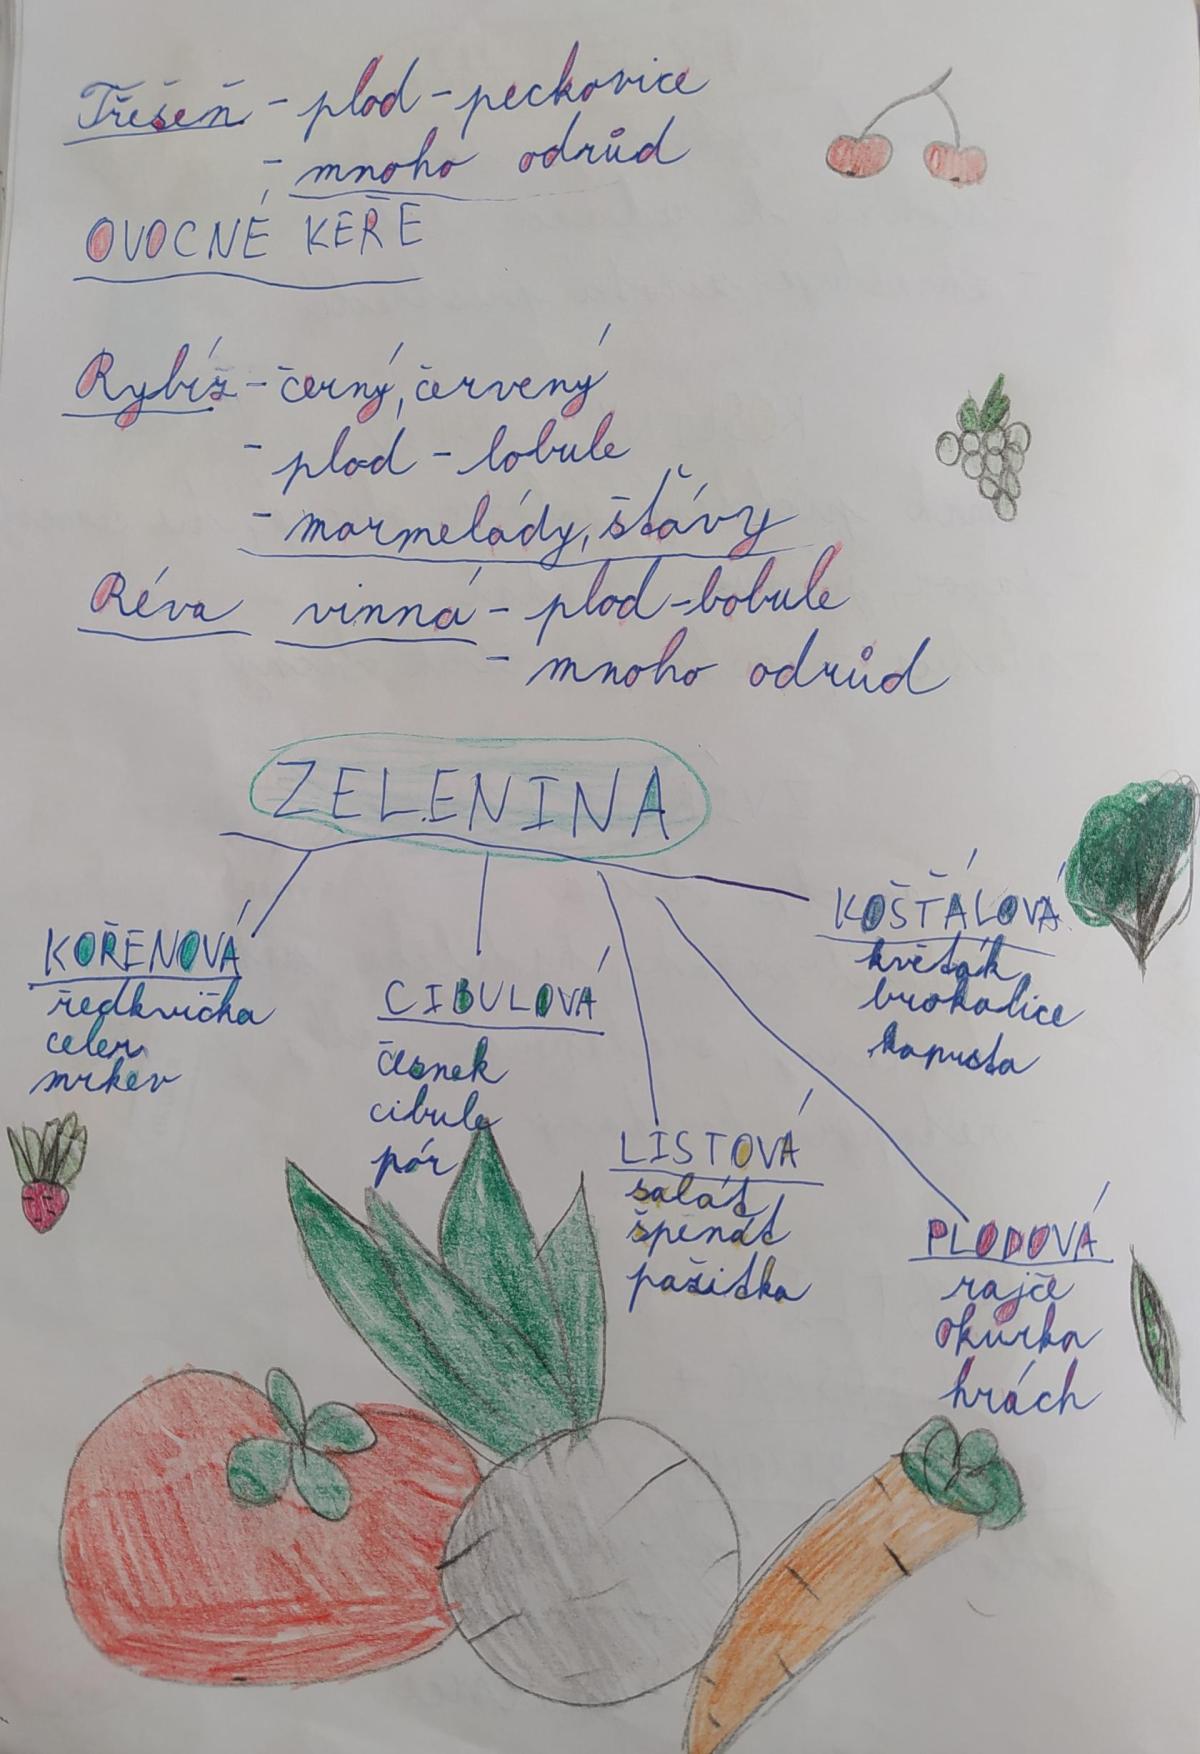 Třešeň - plod - peckovice
- mnoho odrůd
OVOCNÉ KEŘE
Rybíz - černý, červený
- plod - bobule
- marmelády, šťávy
Réva vinná - plod - bobule
- mnoho odrůd
ZELENINA
KOŘENOVÁ
ředkvička
celer
mrkev
CIBULOVÁ
česnek
cibule
pór
LISTOVÁ
salát
špenát
pažitka
PLODOVÁ
rajče
okurka
hrách
KOŠŤÁLOVÁ
květák
brokolice
kapusta